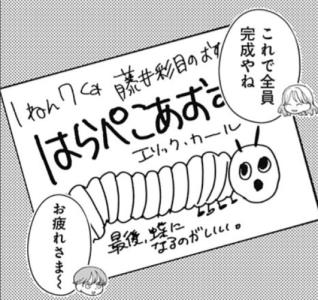 これで全員
完成やね
1ねん7くみ 藤井彩目のおす
はらぺこあおむ
エリック・カール
最後、蝶に
なるのがいい。
お疲れさま〜